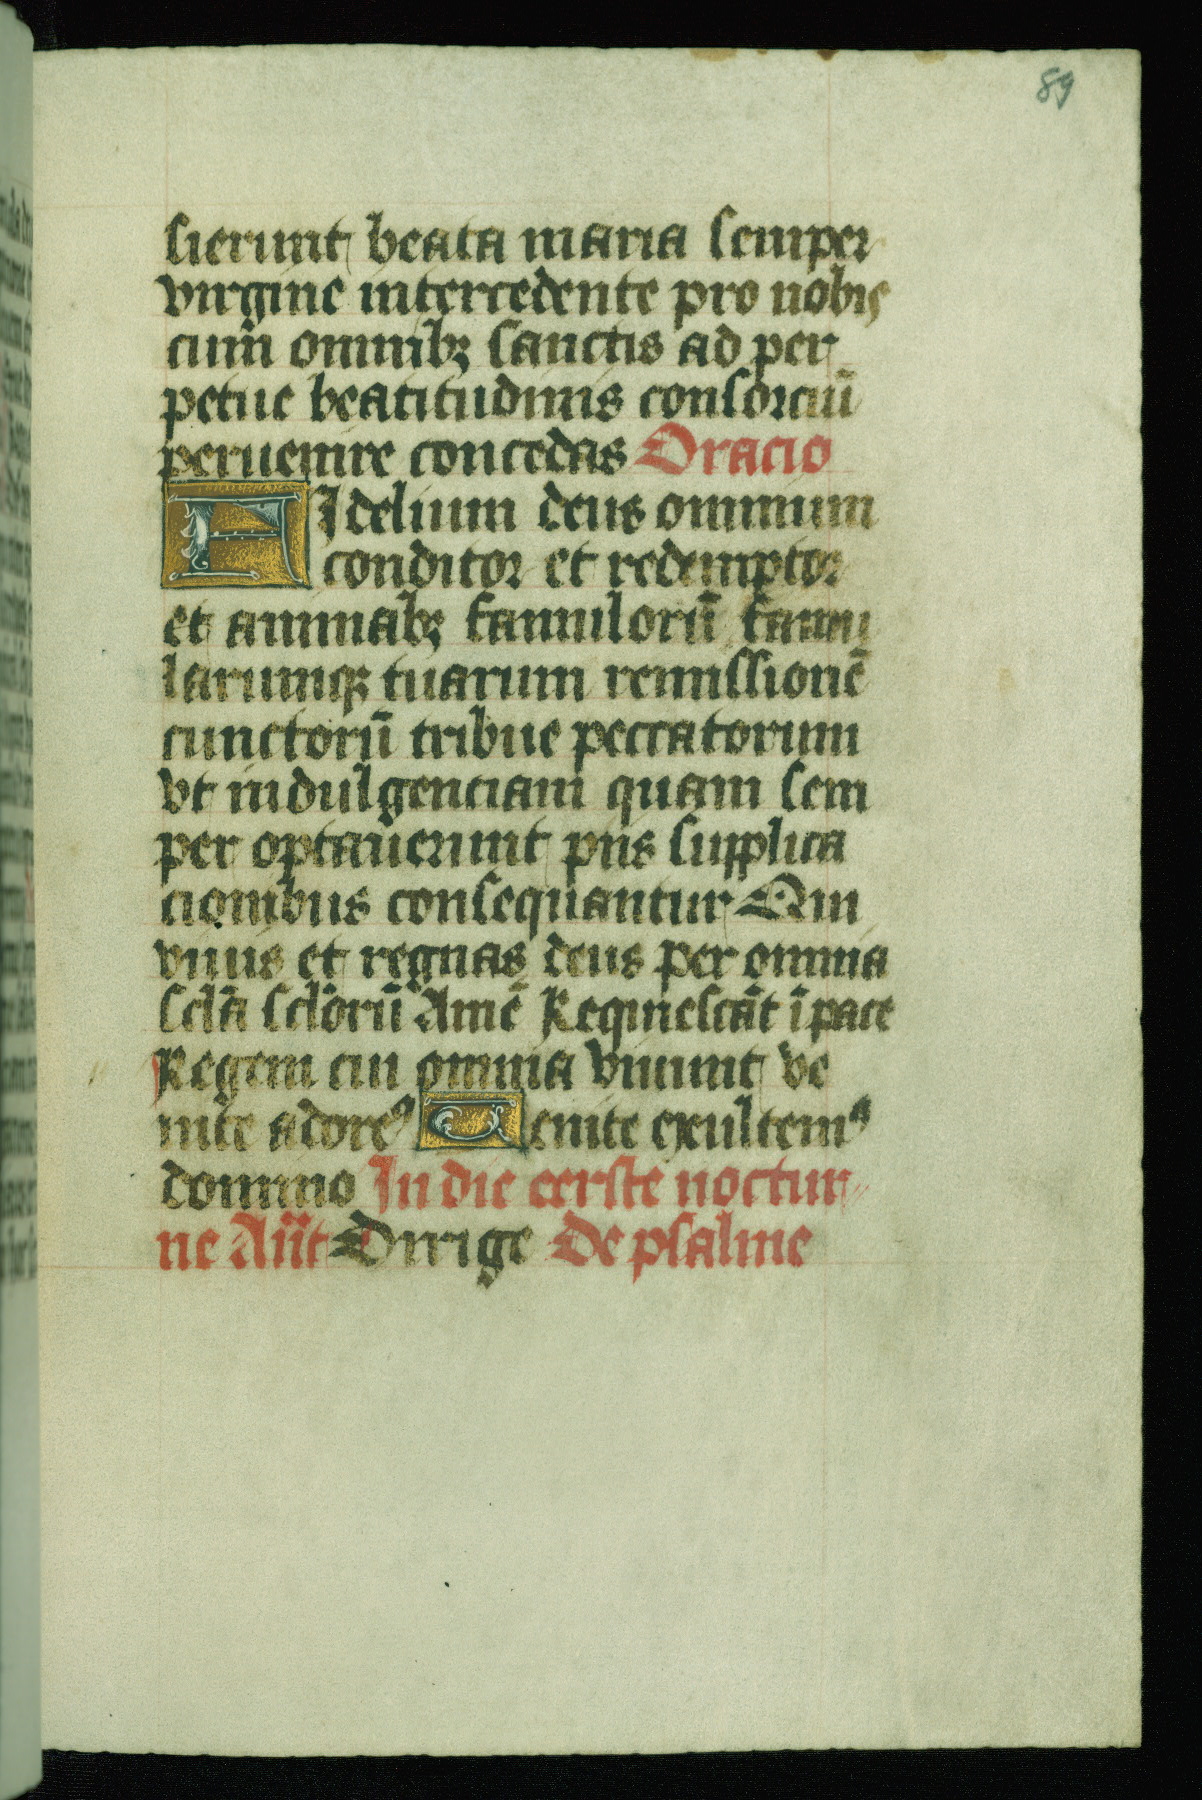 89
sierunt beata maria semper
virgine intercedente pro nobis
cum omnibꝫ sanctis ad per
petue beatitudinis consorciū
peruenire concedas Oracio
FIdelium deus omnium
conditor et redemptor
et animabꝫ famulorū famu
larumqꝫ tuarum remissionē
cunctorū tribue peccatorum
vt indulgenciam quam sem
per optauerunt pijs supplica
cionibus consequantur Qui
viuis et regnas deus per omnia
scl̄a scl̄orū Amē Requiescāt ī pace
Regem cui omnia viuunt ve
nite adoreꝰ Uenite exultemꝰ
domino In die eerste noctur
ne An̄t Dirige De psalme